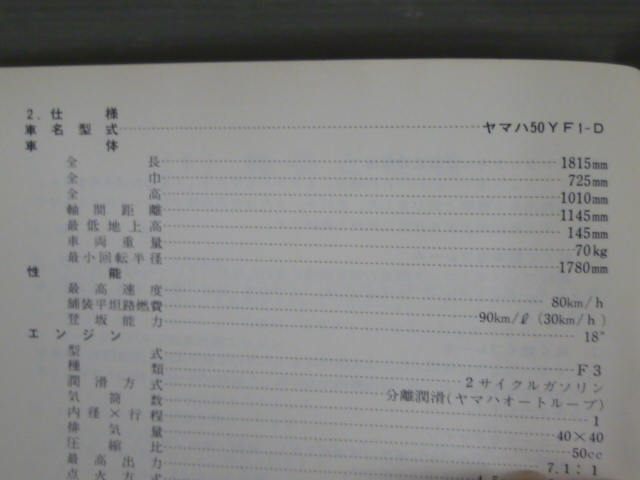 2. 仕様
車名型式 ヤマハ50YF1-D
車体
全長 1815mm
全巾 725mm
全高 1010mm
軸間距離 1145mm
最低地上高 145mm
車両重量 70kg
最小回転半径 1780mm
性能
最高速度 80km/h
舗装平坦路燃費 90km/ℓ (30km/h)
登坂能力 18°
エンジン
型式 F3
種類 2サイクルガソリン
潤滑方式 分離潤滑(ヤマハオートルーブ)
気筒数 1
内径×行程 40×40
排気量 50cc
圧縮比 7.1:1
最高出力
点火方式